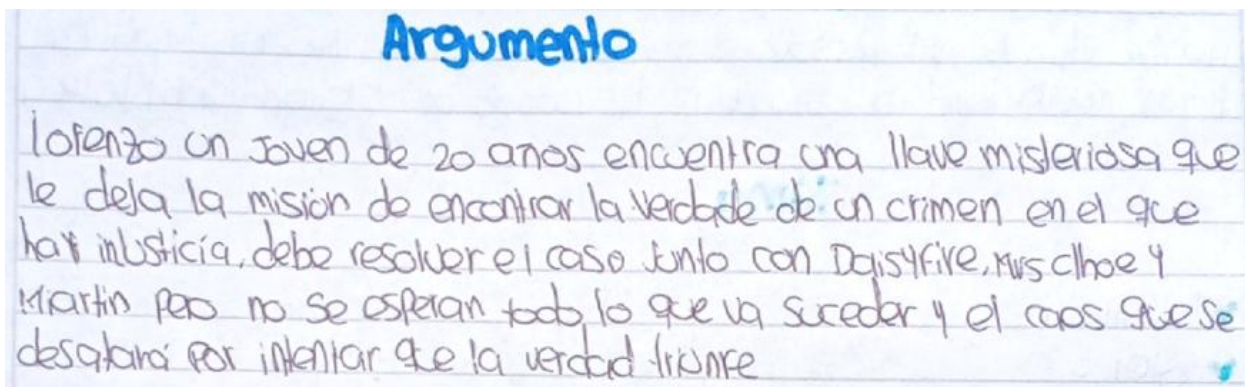 Argumento
lorenzo un Joven de 20 años encuentra una llave misteriosa que
le deja la misión de encontrar la verdade de un crimen en el que
hay injusticia, debe resolver el caso junto con Daisyfire, Mrs clhoe y
Martin pero no se esperan todo lo que va suceder y el caos que se
desatará por intentar que la verdad triunfe